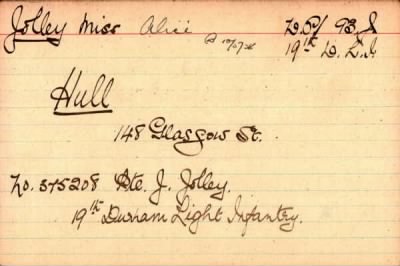 Jolley Miss Alice
19th D.L.I.
Hull
148 Glasgow St.
No. 375208 Pte. J. Jolley.
19th Durham Light Infantry.